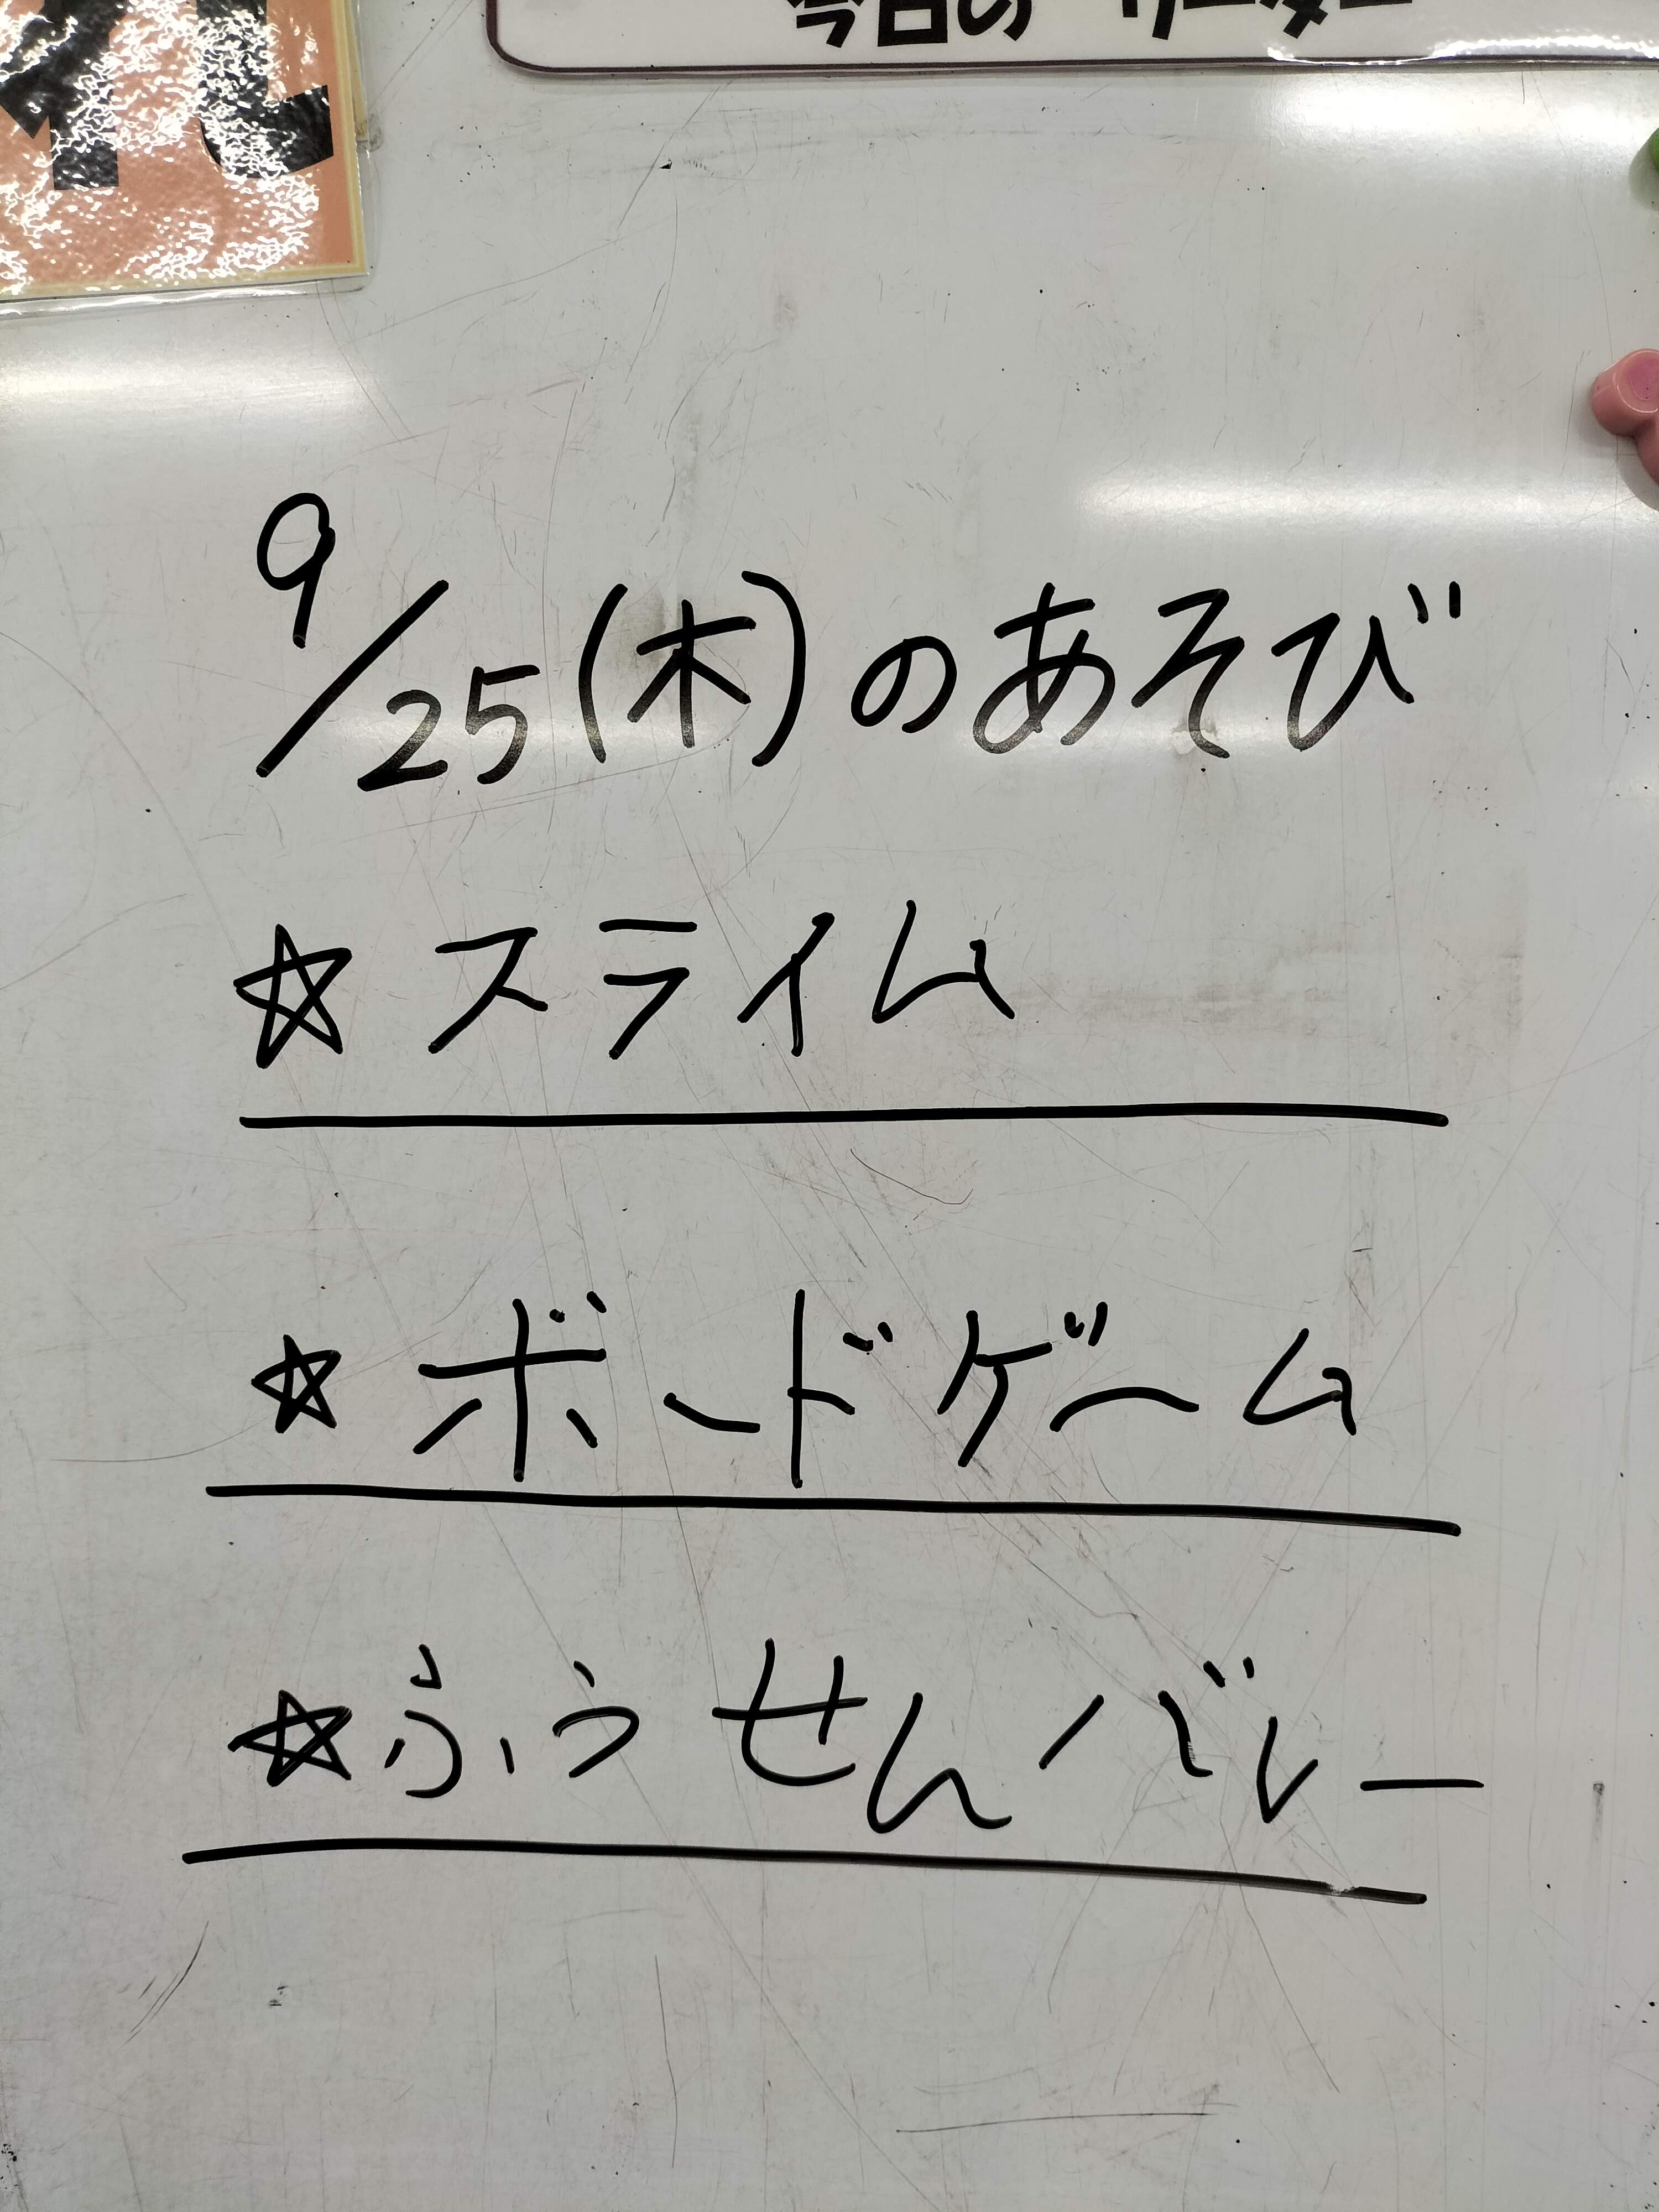 今日の リーダー
9/25(木)のあそび
☆スライム
☆ボードゲーム
☆ふうせんバレー